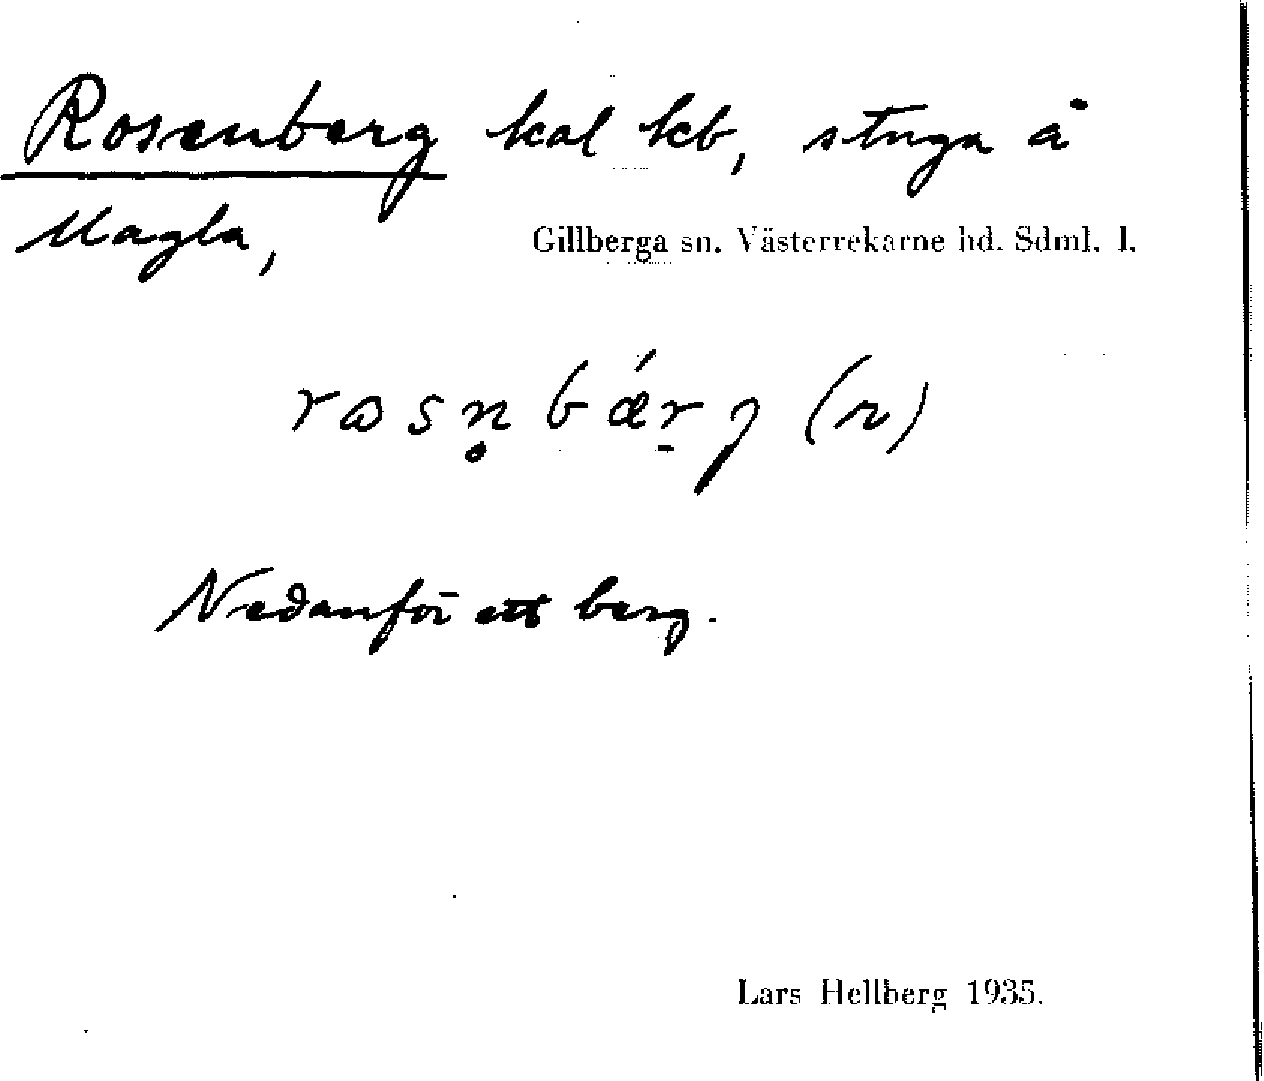 Rosenberg kal kb, stuga å
Magla,
Gillberga sn. Västerrekarne hd. Sdml. l.
rꝏsn̥bǽrg (n)
Nedanför ett berg.
Lars Hellberg 1935.